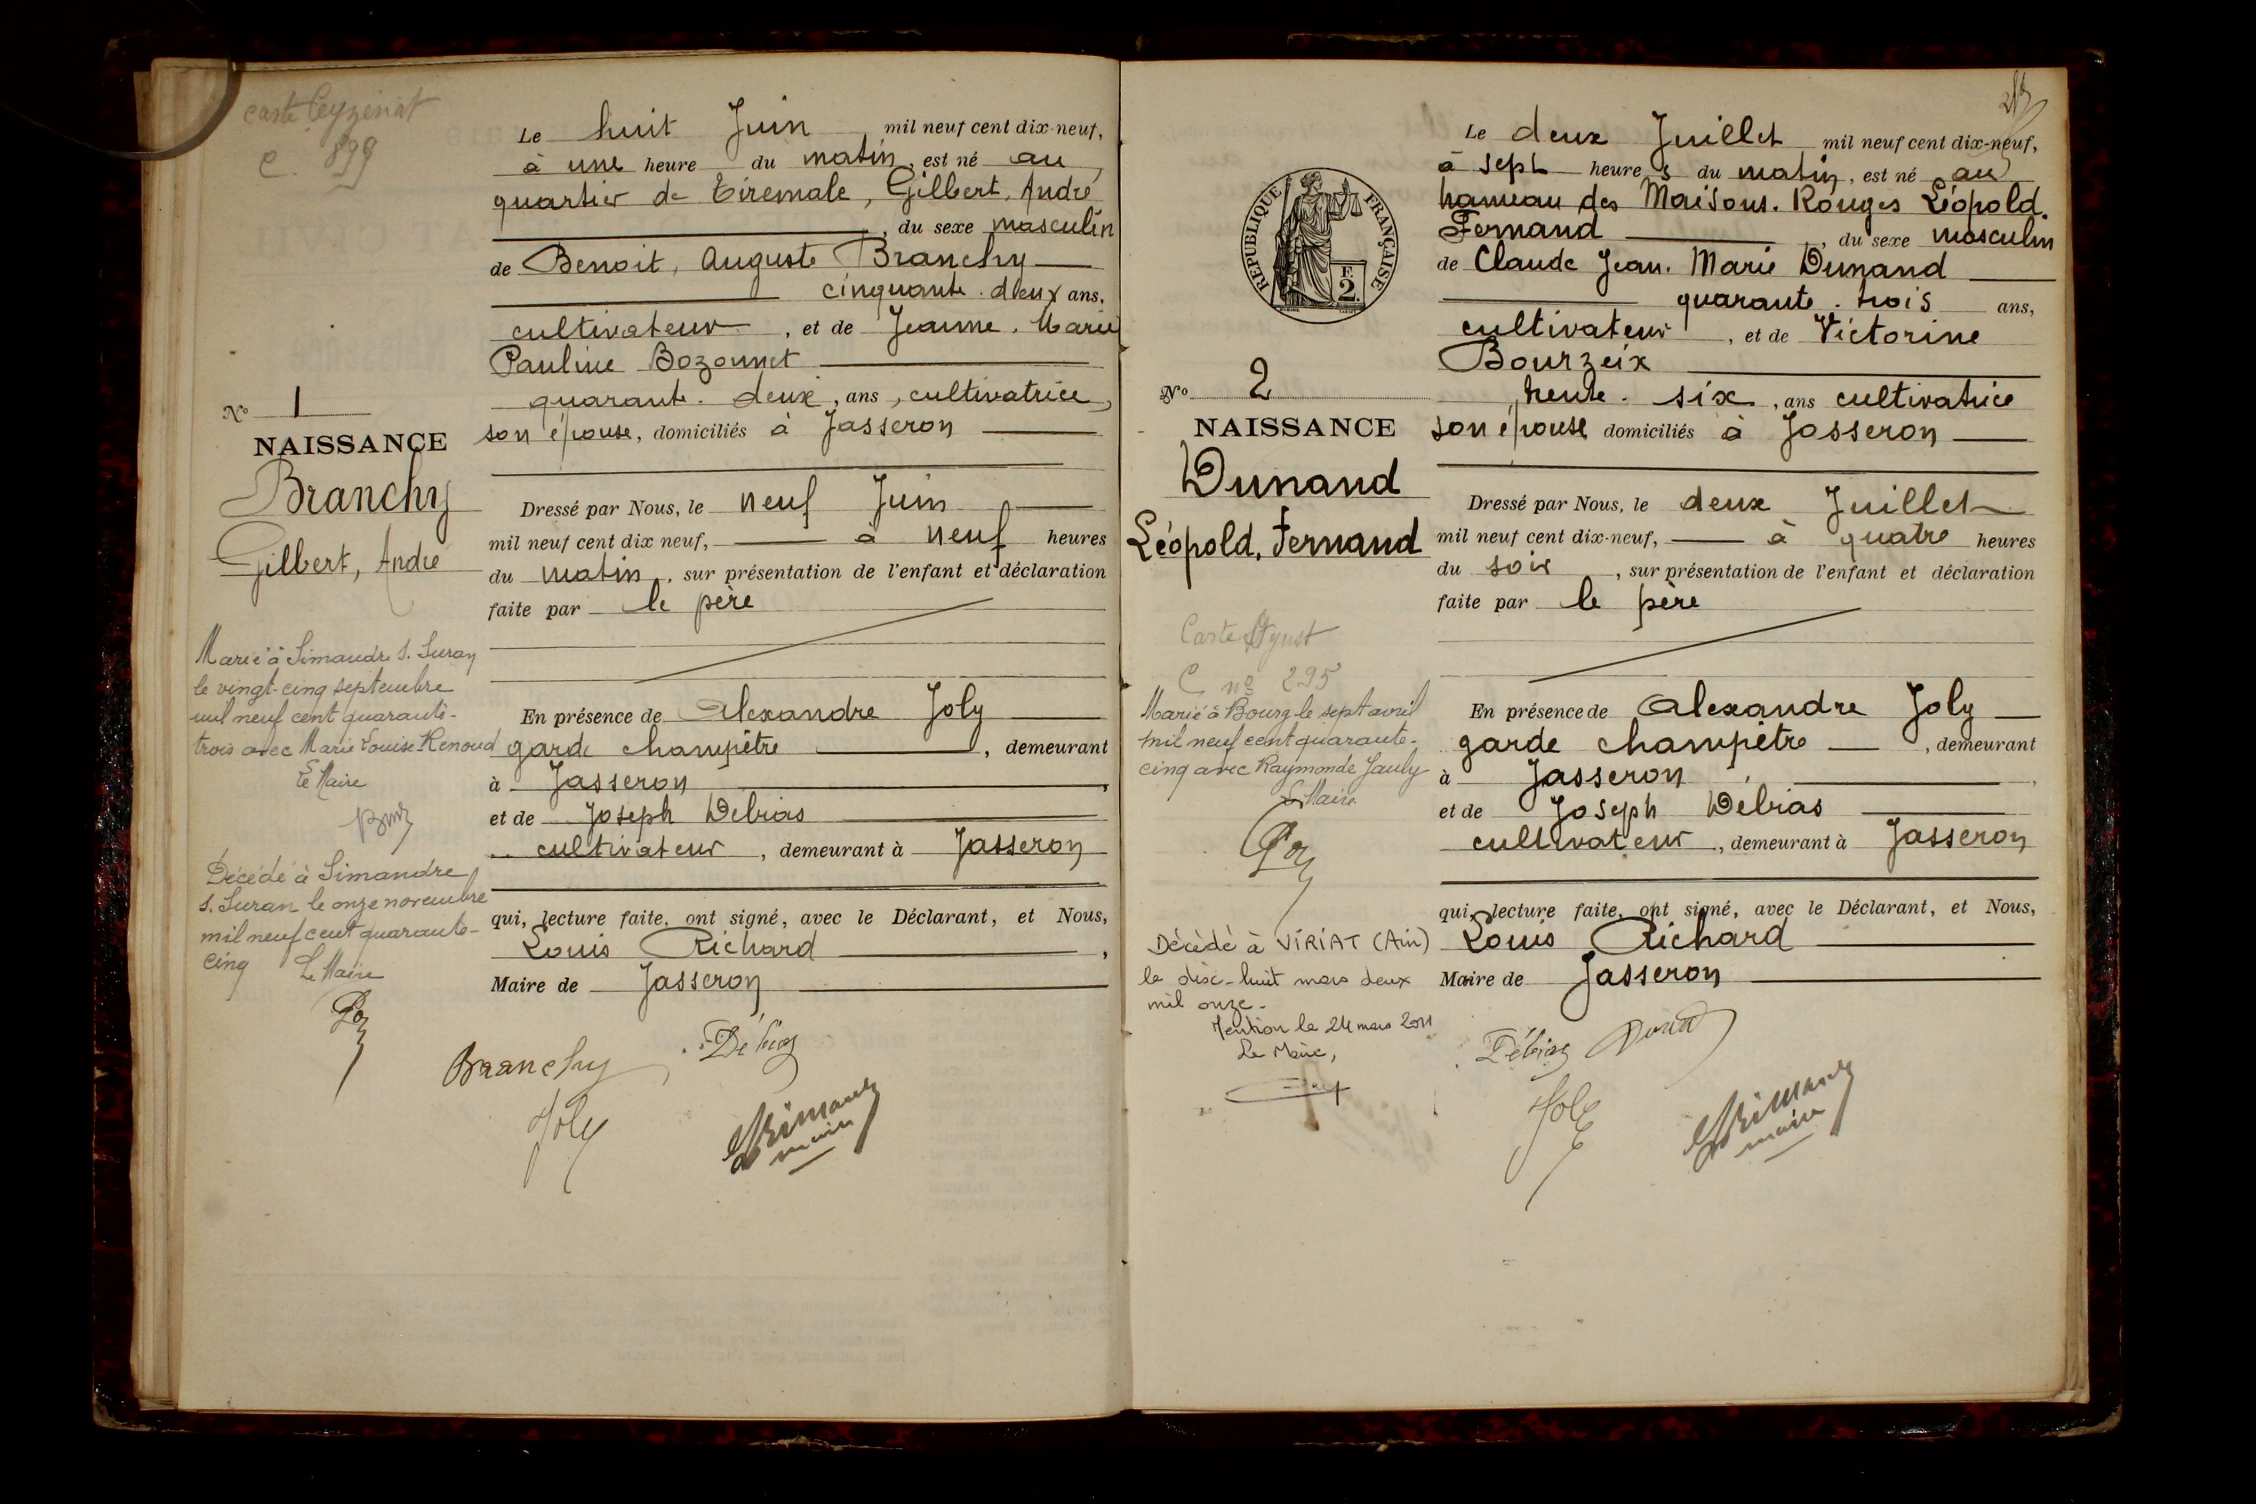 carte Ceyzeriat
C. 899
Le huit Juin, mil neuf cent dix-neuf,
à une heure du matin, est né au
quartier de Tiremale, Gilbert, André
, du sexe masculin
de Benoit, Auguste Branchy
cinquante-deux ans,
cultivateur, et de Jeanne, Marie
Pauline Bozonnet
quarante-deux, ans, cultivatrice,
son épouse, domiciliés à Jasseron
No 1
NAISSANCE
Branchy
Gilbert, André
Dressé par Nous, le neuf Juin
mil neuf cent dix neuf, à neuf heures
du matin, sur présentation de l'enfant et déclaration
faite par le père
Marié à Simandre s. Suran
le vingt-cinq septembre
mil neuf cent quarante-
trois avec Marie Louise Renoud
Le Maire
En présence de Alexandre Joly
garde champêtre, demeurant
à Jasseron,
et de Joseph Debias
cultivateur, demeurant à Jasseron
Décédé à Simandre
s. Suran le onze novembre
mil neuf cent quarante-
cinq Le Maire
qui, lecture faite, ont signé, avec le Déclarant, et Nous,
Louis Richard,
Maire de Jasseron
Branchy
Débias
Joly
maire
Le deux Juillet mil neuf cent dix-neuf,
à sept heures du matin, est né au
hameau des Maisons-Rouges Léopold.
Fernand, du sexe masculin
de Claude Jean-Marie Dunand
quarante-trois ans,
cultivateur, et de Victorine
Bourzeix
trente-six, ans cultivatrice
son épouse domiciliés à Jasseron
RÉPUBLIQUE FRANÇAISE
F.
2.
No 2
NAISSANCE
Dunand
Léopold, Fernand
Dressé par Nous, le deux Juillet
mil neuf cent dix-neuf, à quatre heures
du soir, sur présentation de l'enfant et déclaration
faite par le père
Carte
C no 295
Marié à Bourg le sept avril
mil neuf cent quarante-
cinq avec Raymonde Jauly
Le Maire
En présence de Alexandre Joly
garde champêtre, demeurant
à Jasseron,
et de Joseph Débias
cultivateur, demeurant à Jasseron
qui, lecture faite, ont signé, avec le Déclarant, et Nous,
Louis Richard
Maire de Jasseron
Décédé à VIRIAT (Ain)
le dix-huit mars deux
mil onze.
Mention le 24 mars 2011
Le Maire,
Débias
Joly
maire